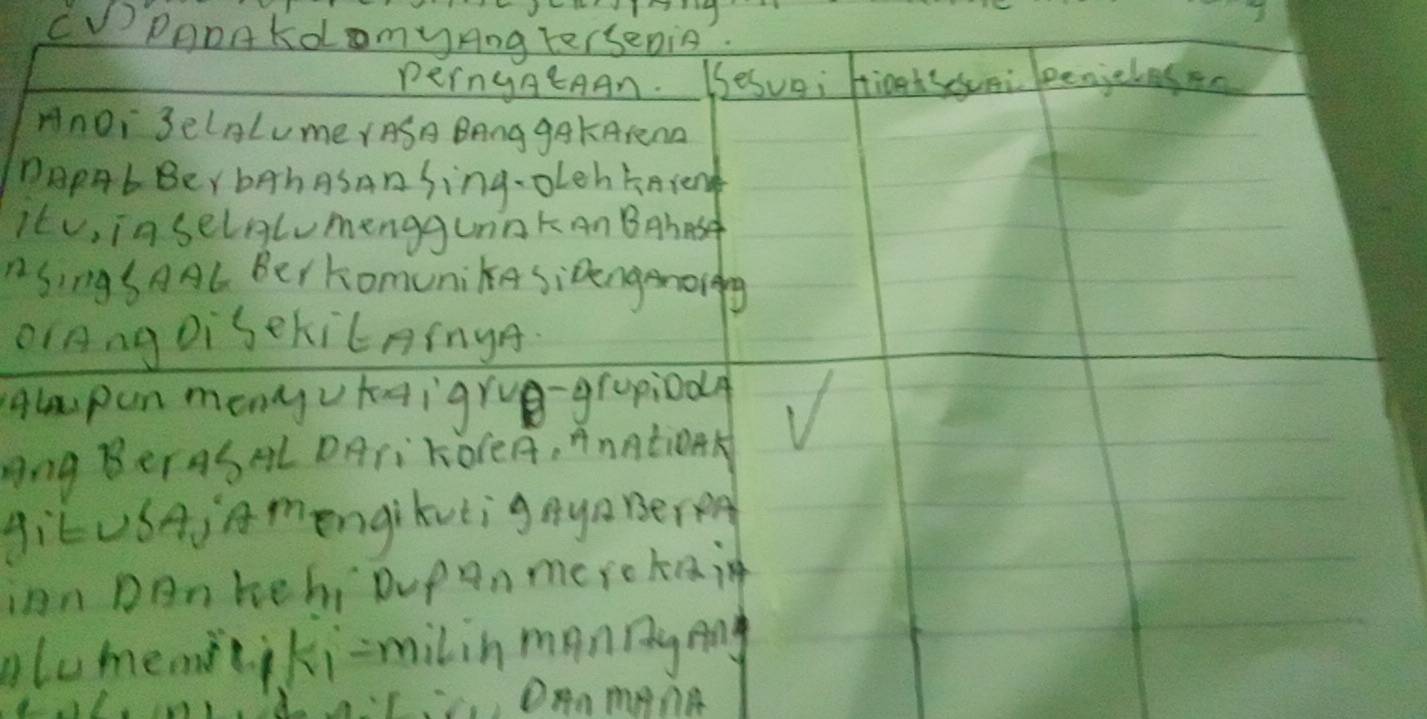 (V) PADA Kolom yAng tersedia.
pernyatAAn. Sesuai tidak sesuai penjelasan
AnDi SelAlu merASA BAnggA kArenA
DApAt BerbAhASA ASing. oleh kArena
itu, iA SelAlu menggunAkAn BAhASA
ASing SAAt BerkomunikASi DengAn orAng
orAng Di SekitArnyA.
menyukAi grup-grup iDolA
Ang BerASAL DAri koreA, AnA tiDAk
gitu SAjA mengikuti gAyA BerpA
iAn DAn kehiDupAn merekA iA
Alu memiliki-milih mAnA yAng
DAn mAnA